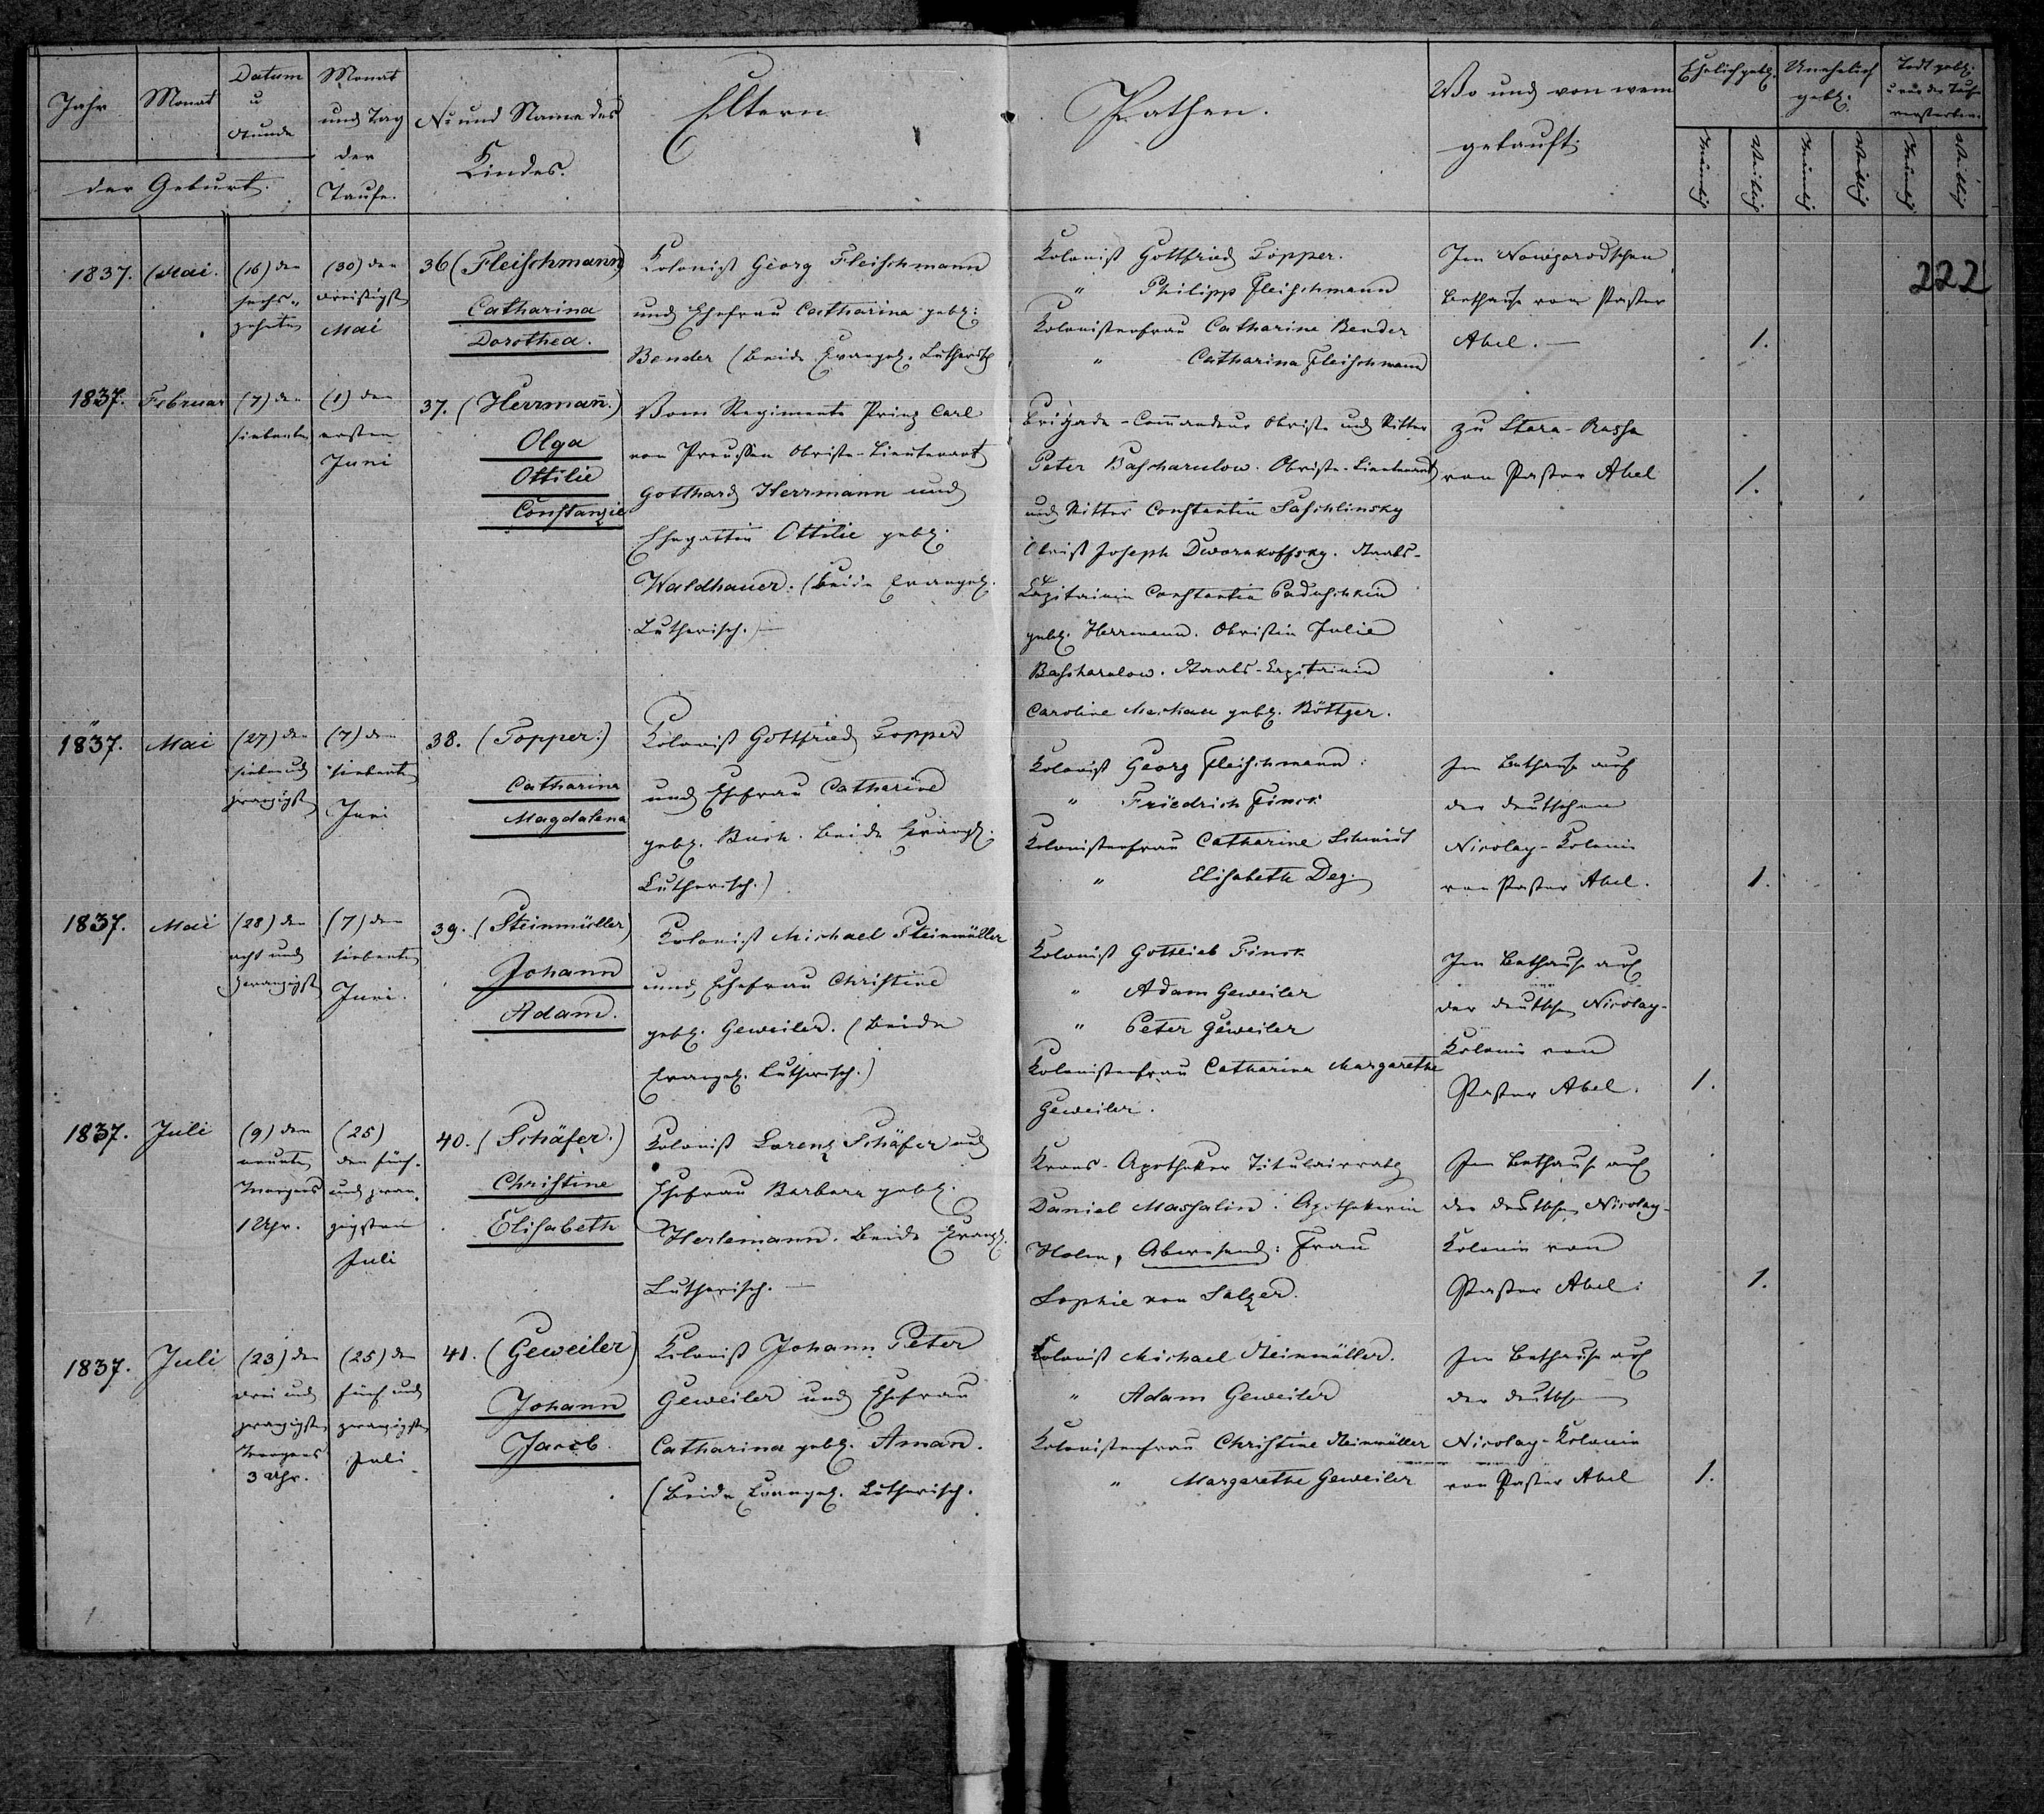 Jahr
Monat
Datum
u
Stunde
der Geburt.
Monat
und Tag
der
Taufe.
No und Name des
Kindes.
Eltern
Pathen.
Wo und von wem
getauft.
Ehelich geb.
Unehelich
geb.
Todt geb.
u. vor der Taufe
verstorben.
männlich
weiblich
männlich
weiblich
männlich
weiblich
222
1837.
Mai.
(16) den
sechs-
zehnten
(30) den
dreißigst
Mai
36 (Fleischmann)
Catharina
Dorothea.
Kolonist Georg Fleischmann
und Ehefrau Catharina geb.
Bender (beide Evangel. Lutherisch
Kolonist Gottfried Topper.
" Philipp Fleischmann
Kolonistenfrau Catharine Bender
" Catharina Fleischmann
Im Nowgorodschen
Bethause vom Pastor
Abel.—
1.
1837.
Februar
(7) den
siebenten
(1) den
ersten
Juni
37. (Herrman̄.)
Olga
Ottilie
Constanzie
Vom Regimente Prinz Carl
von Preußen Obrist-Lieutenant
Gotthard Herrmann und
Ehegattin Ottilie geb.
Waldhauer. (beide Evangel.
Lutherisch.)—
Brigade-Com̄andeur Obrist und Ritter
Peter Bascharulow. Obrist-Lieutenant
und Ritter Constantin Saschlinsky
Obrist Joseph Dworakoffsky. Staabs-
Capitainin Constantin Paduschkin
geb. Herrmann. Obristin Julie
Bascharulow. Staabs-Capitainin
Caroline geb. Böttger.
zu Stara-Russa
von Pastor Abel
1.
1837.
Mai
(27) den
sieben und
zwanzigst
(7) den
siebenten
Juni
38. (Topper.)
Catharina
Magdalena
Kolonist Gottfried Topper
und Ehefrau Catharine
geb. Busch. beide Evangel.
Lutherisch.)
Kolonist Georg Fleischmann.
" Friedrich Finck
Kolonistenfrau Catharine Schmidt
" Elisabeth Deg.
Im Bethause auf
der deutschen
Nicolay-Kolonie
von Pastor Abel.
1.
1837.
Mai
(28) den
acht und
zwanzigst
(7) den
siebenten
Juni.
39. (Steinmüller)
Johann
Adam.
Kolonist Michael Steinmüller
und Ehefrau Christine
geb. Geweiler. (beide
Evangel. Lutherisch.)
Kolonist Gottlieb Finck
" Adam Geweiler
" Peter Geweiler
Kolonistenfrau Catharina Margarethe
Geweiler.
Im Bethause auf
der deutschen Nicolay-
Kolonie von
Pastor Abel.
1.
1837.
Juli
(9) den
neunten
Morgens
1 Uhr.
(25)
den fünf-
und zwan-
zigsten
Juli
40. (Schäfer.)
Christine
Elisabeth
Kolonist Lorenz Schäfer und
Ehefrau Barbara geb.
Herlemann. beide Evangel.
Lutherisch.—
Krons-Apotheker Titulairrath
Daniel Massalin. Apothekerin
Holm, Abwesend: Frau
Sophie von Salzer.
Im Bethause auf
der deutschen Nicolay-
Kolonie von
Pastor Abel.
1.
1837.
Juli
(23) den
drei und
zwanzigsten
Morgens
3 Uhr.
(25) den
fünf und
zwanzigsten
Juli
41. (Geweiler)
Johann
Jacob.
Kolonist Johann Peter
Geweiler und Ehefrau
Catharina geb. Aman.
(Beide Evangel. Lutherisch.
Kolonist Michael Steinmüller.
" Adam Geweiler
Kolonistenfrau Christine Steinmüller
" Margarethe Geweiler
Im Bethause auf
der deutschen
Nicolay-Kolonie
von Pastor Abel
1.